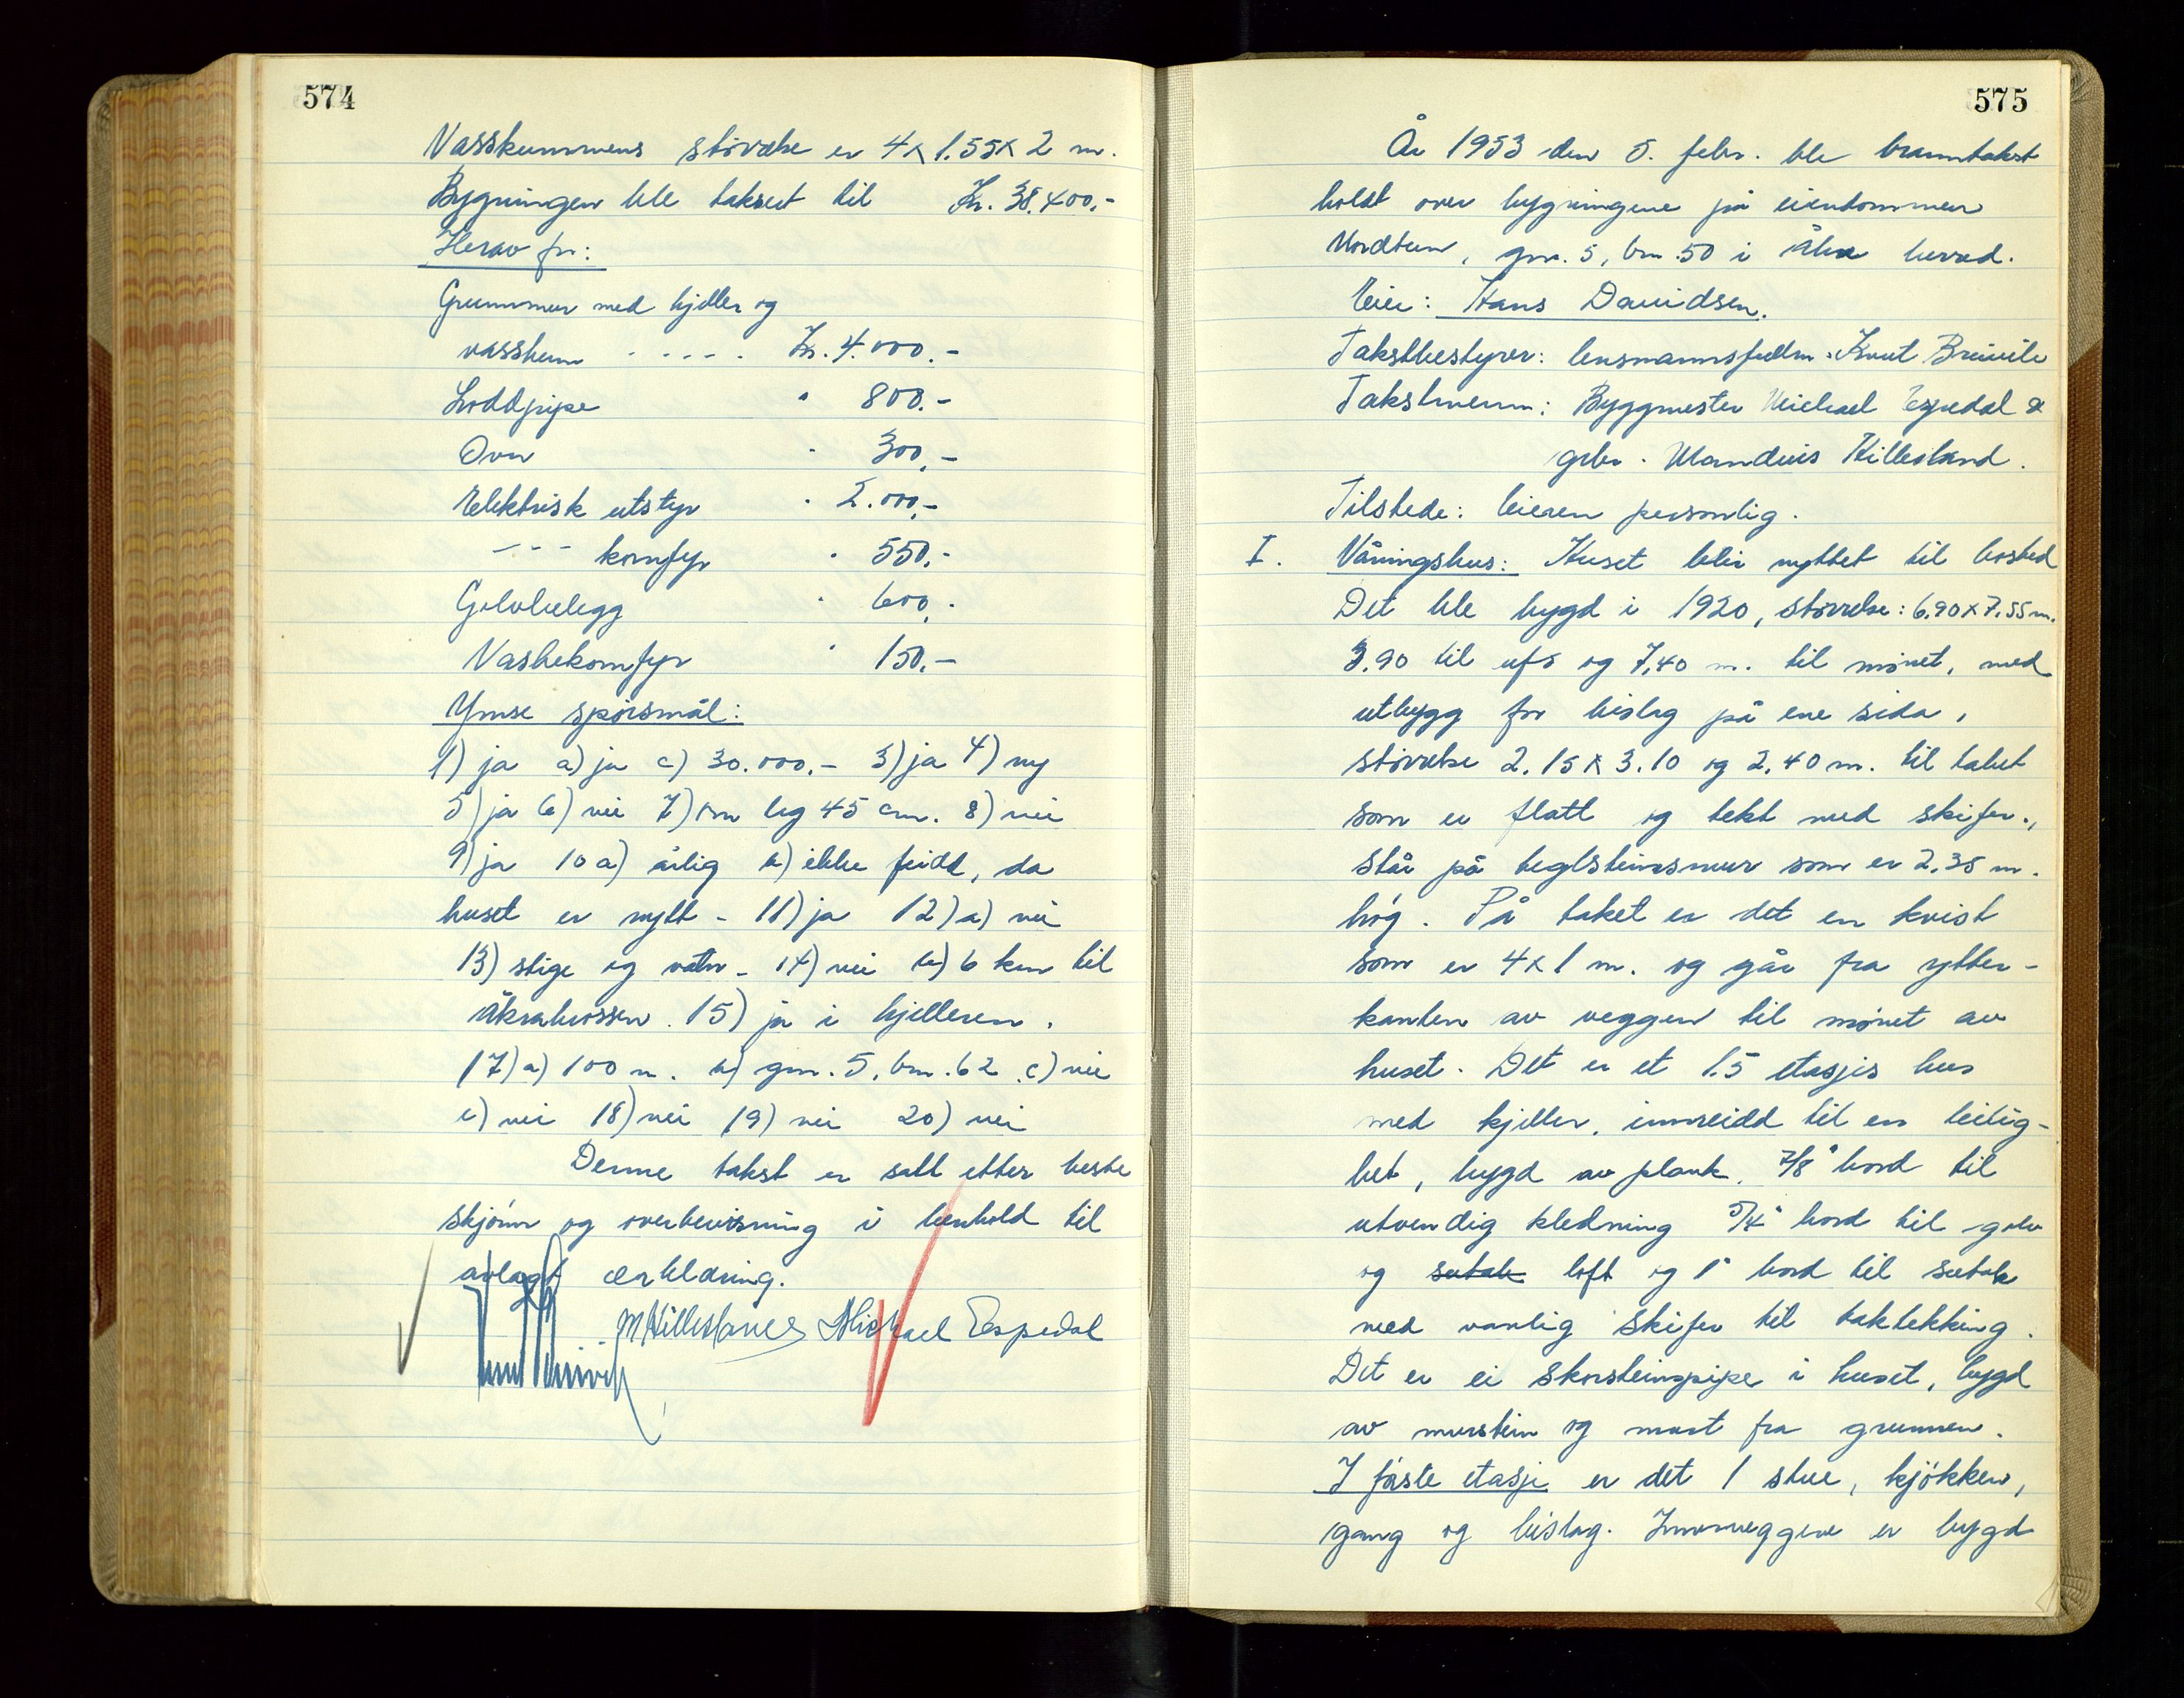 574
Vasskummens størrelse er 4 x 1.55 x 2 m.
Bygningen ble taksert til Kr. 38.400,-
Herav for:
Grunnmur med kjeller og
vasskum - - - - . Kr. 4.000.-
Loddpipe " 800.-
Ovn " 300,-
Elektrisk utstyr " 2.000,-
- - - komfyr " 550,-
Golvbelegg " 600,-
Vaskekomfyr " 150.-
Ymse spørsmål:
1) ja a) ja c) 30.000.- 3) ja 4) ny
5) ja 6) nei 7) om lag 45 cm. 8) nei
9) ja 10 a) årlig b) ikke feidd, da
huset er nytt - 11) ja 12) a) nei
13) stige og vatn - 14) nei b) 6 km til
Åkrahavn. 15) ja i kjelleren.
17) a) 100 m. b) gnr. 5, bnr. 62 c) nei
e) nei 18) nei 19) nei 20) nei
Denne takst er satt etter beste
skjønn og overbevisning i henhold til
avlagt erklæring.
M Killesland Michael Espedal
575
År 1953 den 5. febr. ble branntakst
holdt over bygningene på eiendommen
Nordtun, gnr. 5, bnr. 50 i Åkra herred.
Eier: Hans Davidsen.
Takstbestyrer: lensmannsfullm. Knut Breivik
Takstmenn: Byggmester Michael Espedal &
gbr. Mandius Killesland.
Tilstede: Eieren personlig.
I. Våningshus: Huset blir nyttet til bosted
Det ble bygd i 1920, størrelse: 6.90 x 7.55 m.
3.90 til ufs og 7,40 m. til mønet, med
utbygg for bislag på ene sida,
størrelse 2.15 x 3.10 og 2.40 m. til taket
som er flatt og tekt med skifer.,
står på teglsteinsmur som er 2.35 m.
høg. På taket er det en kvist
som er 4 x 1 m. og går fra ytter-
kanten av veggen til mønet av
huset. Det er et 1.5 etasjes hus
med kjeller, innreidd til en leilig-
het, bygd av plank. 7/8" bord til
utvendig kledning 5/4" bord til golv
og sutak loft og 1" bord til sutak
med vanlig skifer til taktekking.
Det er ei skorsteinspipe i huset, bygd
av murstein og murt fra grunnen.
I første etasje er det 1 stue, kjøkken,
gang og bislag. Innerveggene er bygd